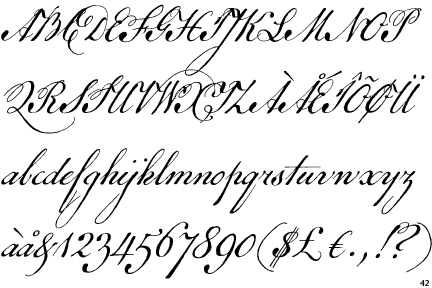 ABCDEFGHIJKLMNOP
QRSTUVWXYZÀÅÉÎÕØÜ
abcdefghijklmnopqrstuvwxyz
àå&1234567890($£€.,!?)
42